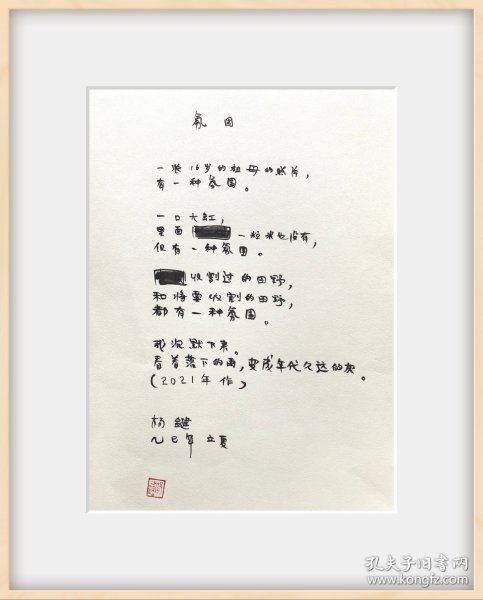 氛围
一张16岁的祖母的照片，
有一种氛围。
一口大缸，
里面 一粒米也没有，
但有一种氛围。
收割过的田野，
和将要收割的田野，
都有一种氛围。
我沉默下来。
看着落下的雨，变成年代久远的灰。
（2021年作）
杨键
乙巳年 立夏
孔夫子旧书网
www.kongfz.com